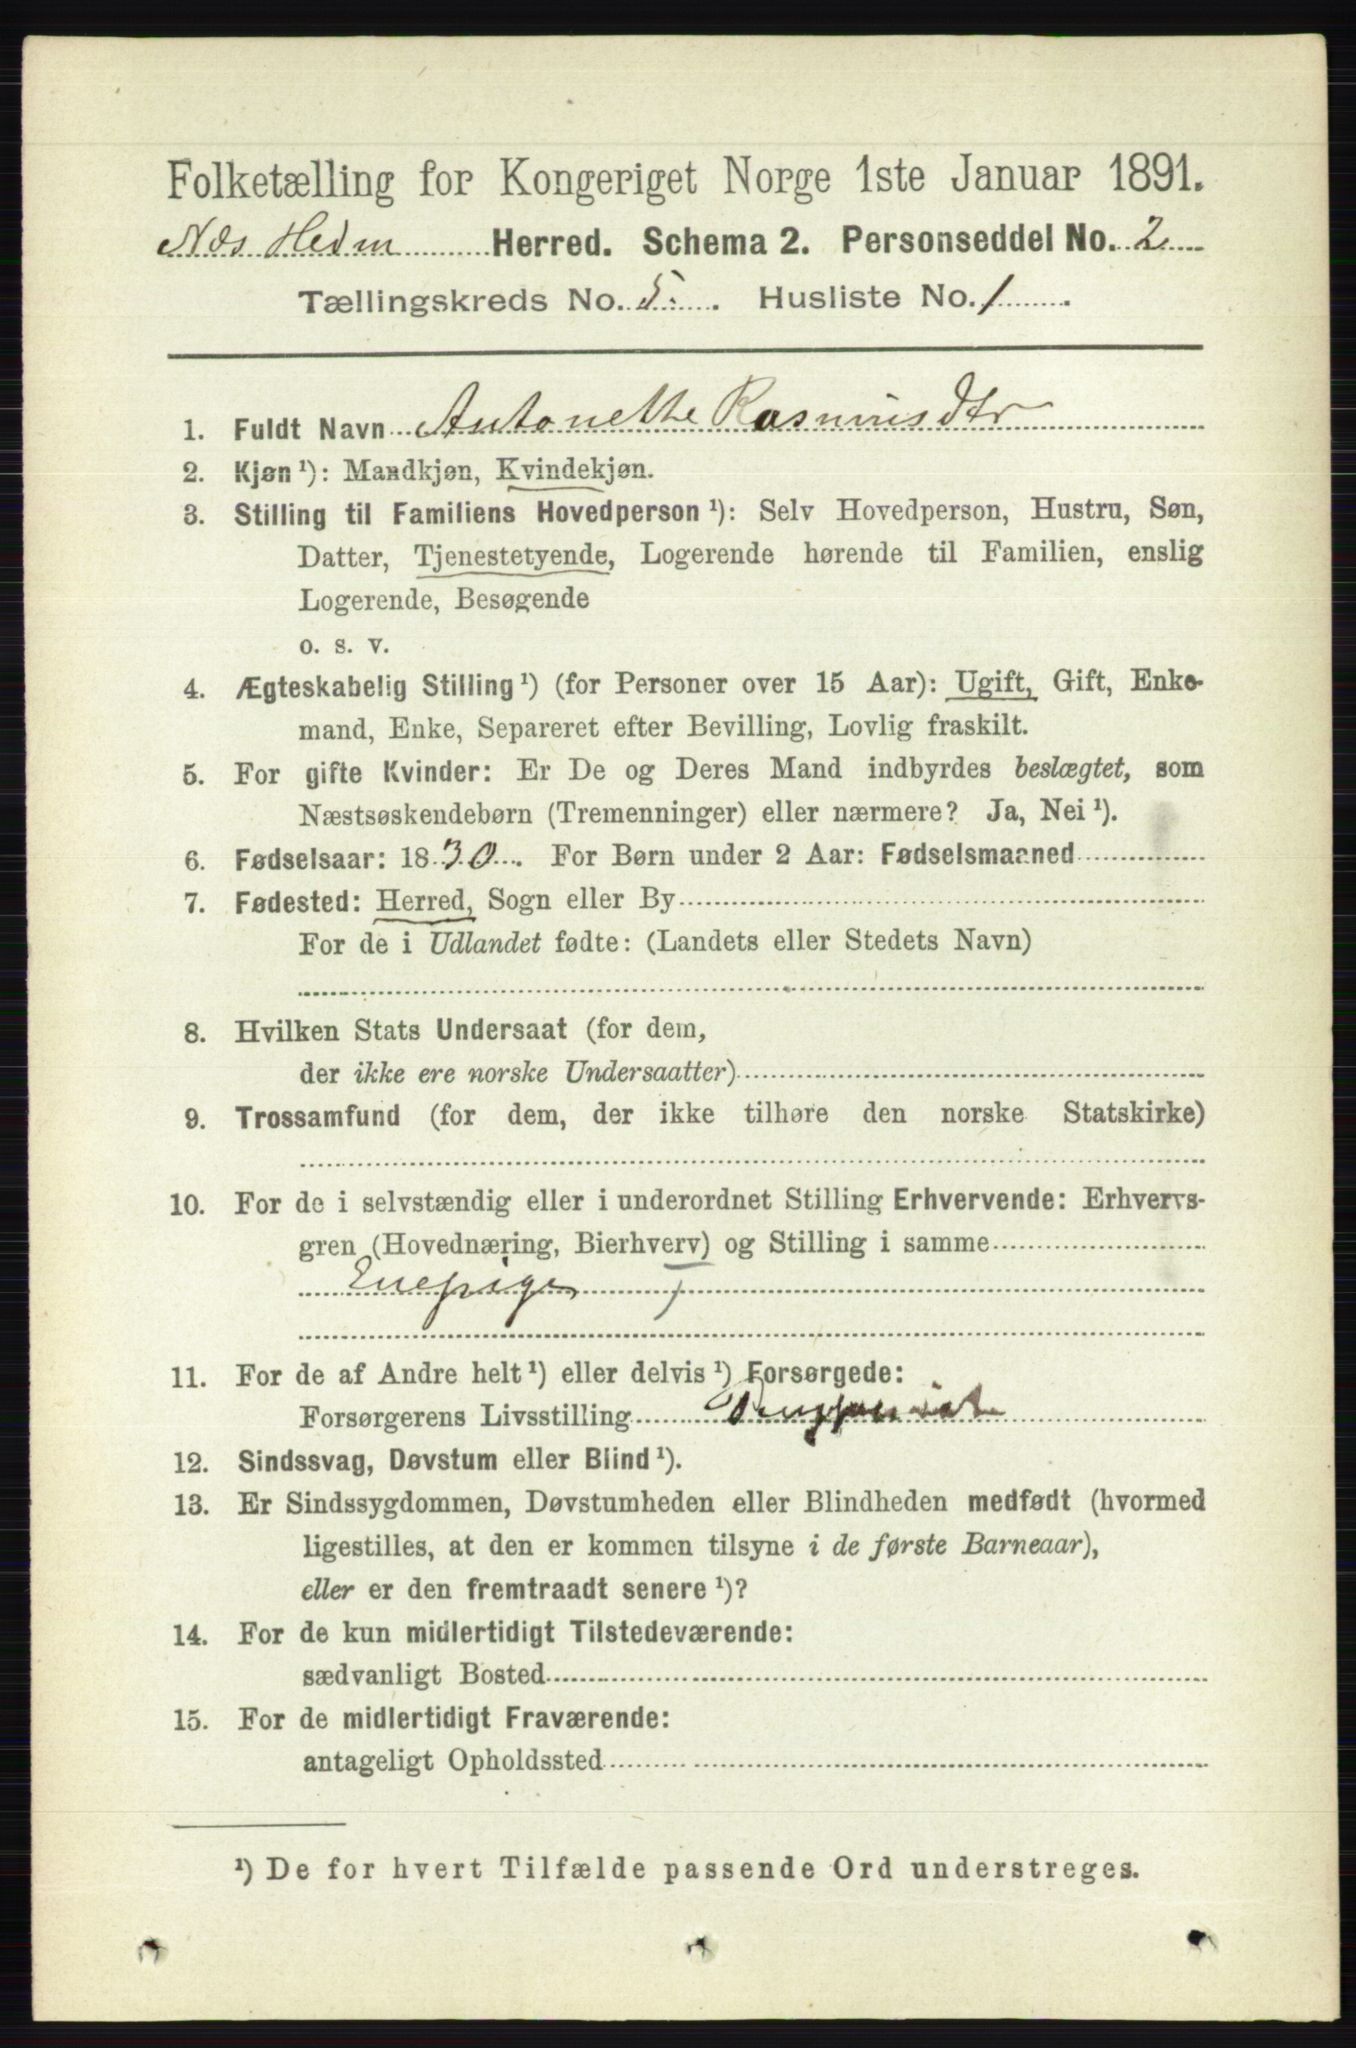 Folketælling for Kongeriget Norge 1ste Januar 1891.
Næs Hedm Herred. Schema 2. Personseddel No. 2
Tællingskreds No. 5. Husliste No. 1.
1. Fuldt Navn Antonette Rasmusdtr
2. Kjøn ¹): Mandkjøn, Kvindekjøn.
3. Stilling til Familiens Hovedperson ¹): Selv Hovedperson, Hustru, Søn,
Datter, Tjenestetyende, Logerende hørende til Familien, enslig
Logerende, Besøgende
o. s. v.
4. Ægteskabelig Stilling ¹) (for Personer over 15 Aar): Ugift, Gift, Enke-
mand, Enke, Separeret efter Bevilling, Lovlig fraskilt.
5. For gifte Kvinder: Er De og Deres Mand indbyrdes beslægtet, som
Næstsøskendebørn (Tremenninger) eller nærmere? Ja, Nei ¹).
6. Fødselsaar: 1830. For Børn under 2 Aar: Fødselsmaaned
7. Fødested: Herred, Sogn eller By
For de i Udlandet fødte: (Landets eller Stedets Navn)
8. Hvilken Stats Undersaat (for dem,
der ikke ere norske Undersaatter)
9. Trossamfund (for dem, der ikke tilhøre den norske Statskirke)
10. For de i selvstændig eller i underordnet Stilling Erhvervende: Erhvervs-
gren (Hovednæring, Bierhverv) og Stilling i samme
Enepige
11. For de af Andre helt ¹) eller delvis ¹) Forsørgede:
Forsørgerens Livsstilling
12. Sindssvag, Døvstum eller Blind ¹).
13. Er Sindssygdommen, Døvstumheden eller Blindheden medfødt (hvormed
ligestilles, at den er kommen tilsyne i de første Barneaar),
eller er den fremtraadt senere ¹)?
14. For de kun midlertidigt Tilstedeværende:
sædvanligt Bosted
15. For de midlertidigt Fraværende:
antageligt Opholdssted
¹) De for hvert Tilfælde passende Ord understreges.